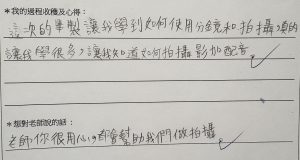 *我的過程收穫及心得:
這次的畢製讓我學到如何使用分鏡和拍攝,真的
讓我學很多,讓我知道如何拍攝影加配音
*想對老師說的話:
老師你很用心,都會幫助我們做拍攝